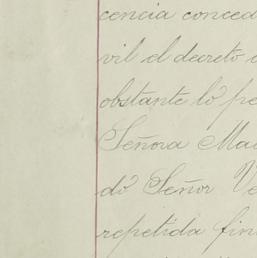 cencia conced
vil el decreto
obstante lo pe
Señora Ma
do Señor Ve
repetida fin